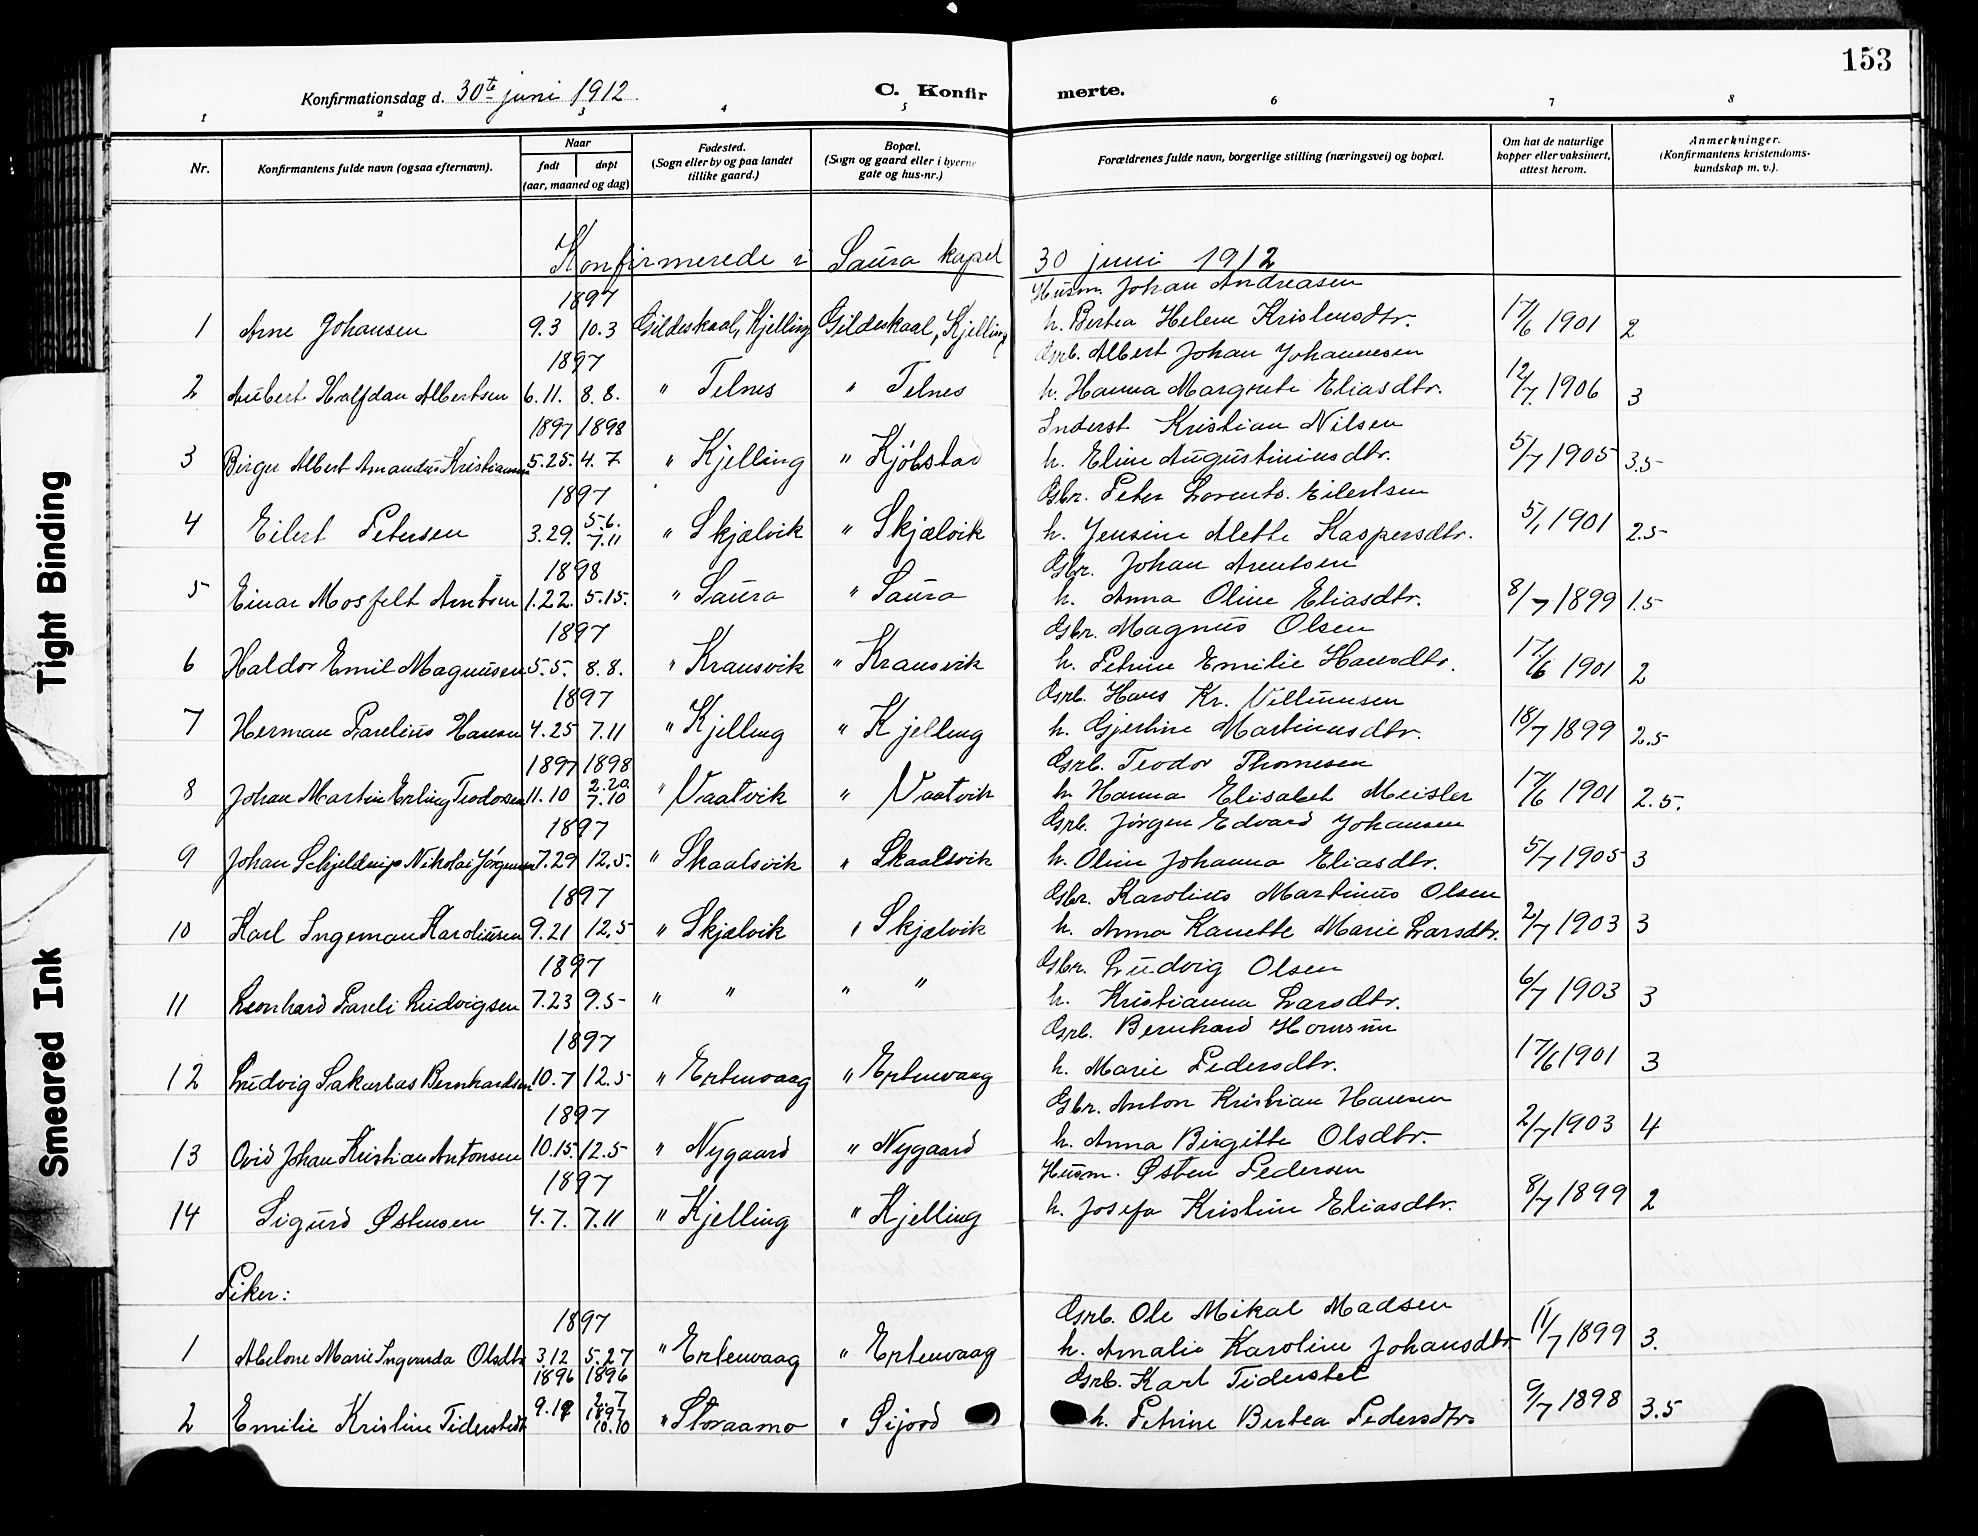 153
Konfirmationsdag d. 30te juni 1912 C. Konfirmerte.
1 2 3 4 5 6 7 8
Nr. Konfirmantens fulde navn (ogsaa efternavn). Naar født døpt (aar, maaned og dag) Fødested. (Sogn eller by og paa landet tillike gaard.) Bopæl. (Sogn og gaard eller i byerne gate og hus-nr.) Forældrenes fulde navn, borgerlige stilling (næringsvei) og bopæl. Om hat de naturlige kopper eller vaksinert, attest herom. Anmerkninger. (Konfirmantens kristendoms-kundskap m. v.).
Konfirmerede i Saura kapel 30 juni 1912
1897 Husm. Johan Andreasen
1 Arne Johansen 9.3 10.3 Gildeskaal, Kjelling Gildeskaal, Kjelling h. Bertea Helene Kristensdtr. 17/6 1901 2
1897 Grb. Albert Johan Johannesen
2 Aubert Halfdan Albertsen 6.11. 8.8. " Telnes " Telnes h. Hanna Margrete Eliasdtr. 12/7. 1906 3
1897 1898 Inderst Kristian Nilsen
3 Birger Albert Amandus Kristiansen 5.25. 4.7 " Kjelling " Kjøbstad h. Eline Augustiniusdtr. 5/7 1905 3.5
1897 Gbr. Peter Lorents. Eilertsen
4 Eilert Petersen 3.29. 5.6. 7.11 " Skjælvik " Skjælvik h. Jensine Alette Kaspersdtr. 5/1 1901 2.5
1898 Gbr. Johan Arntsen
5 Einar Mosfelt Arntsen 1.22. 5.15. " Saura " Saura h. Anna Oline Eliasdtr. 8/7 1899 1.5
1897 Gbr. Magnus Olsen
6 Haldor Emil Magnusen 5.5. 8.8. " Kransvik " Kransvik h. Petrine Emilie Hansdtr. 17/6 1901 2
1897 Grb. Hans Kr. Villumsen
7 Herman Parelius Hansen 4.25 7.11 " Kjelling " Kjelling h. Gjertine Martinusdtr. 18/7 1899 2.5
1897 1898 Grb. Teodor Thomesen
8 Johan Martin Erling Teodorsen 11.10 2.20. 7.10 " Vaatvik " Vaatvik h. Hanna Elisabet Meisler 17/6 1901 2.5.
1897 Grb. Jørgen Edvard Johansen
9 Johan Schjeldrup Nikolai Jørgensen 7.29 12.5. " Skaalsvik " Skaalsvik h. Oline Johanna Eliasdtr. 5/7 1905 3
1897 Gbr. Karolius Martinus Olsen
10 Karl Ingeman Karoliusen 9.21 12.5 " Skjælvik " Skjælvik h. Anna Kanette Marie Larsdtr. 2/7 1903 3
1897 Gbr. Ludvig Olsen
11 Leonhard Pareli Ludvigsen 7.23 9.5 " " " " h. Kristianna Larsdtr. 6/7 1903 3
1897 Grb. Bernhard
12 Ludvig Sakarias Bernhardsen 10.7 12.5 " Ertenvaag " Ertenvaag h. Marie Pedersdtr. 17/6 1901 3
1897 Gbr. Anton Kristian Hansen
13 Ovid Johan Kristian Antonsen 10.15. 12.5 " Nygaard " Nygaard h. Anna Birgitte Olsdtr. 2/7 1903 4
1897 Husm. Østen Pedersen
14 Sigurd Østensen 4.7. 7.11 " Kjelling " Kjelling h. Josefa Kristine Eliasdtr. 8/7 1899 2
Piker:
1897 Grb. Ole Mikal Madsen
1 Abelone Marie Ingvarda Olsdtr 3.12 5.27 " Ertenvaag " Ertenvaag h. Amalie Karoline Johansdtr 11/7 1899 3.
1896 1896 Grb. Karl Tiderstet
2 Emilie Kristine Tiderstedt 9.19 2.7 1897 10.10 " Storaamo " Sijord h. Petrine Bertea Pedersdtr 9/7 1898 3.5
Tight Binding
Smeared Ink